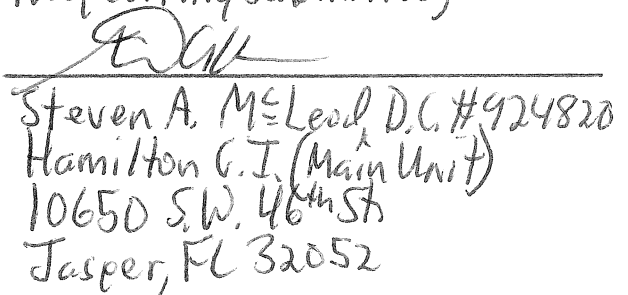 Steven A. McLeod, D.C.#924820
Hamilton C.I. (Main Unit)
10650 S.W. 46th St.
Jasper, FL 32052